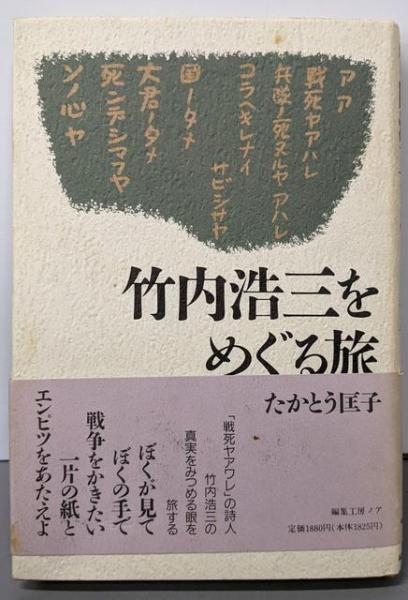 アア
戦死ヤアハレ
兵隊ノ死ヌルヤアハレ
コラヘキレナイ
サビシサヤ
国ノタメ
大君ノタメ
死ンデシマフヤ
ソノ心ヤ
竹内浩三を
めぐる旅
たかとう匡子
「戦死ヤアワレ」の詩人
竹内浩三の
真実をみつめる眼を
旅する
ぼくが見て
ぼくの手で
戦争をかきたい
一片の紙と
エンピツをあたえよ
編集工房ノア
定価1880円(本体1825円)